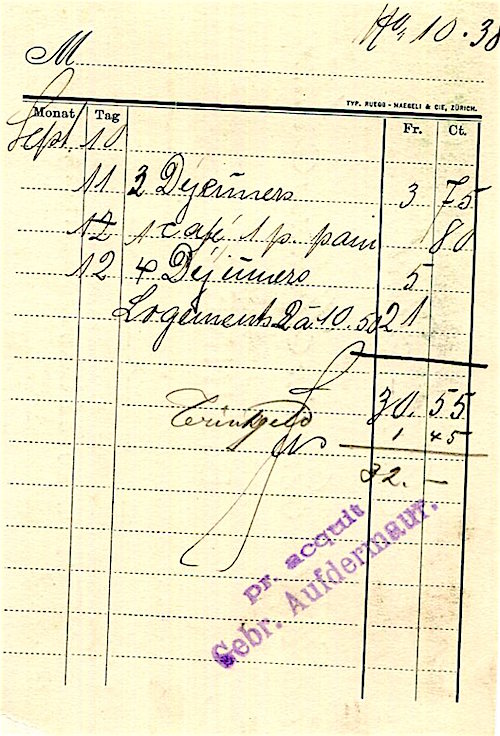 No 10.38
M
TYP. RUEGG - NAEGELI & CIE, ZÜRICH.
Monat Tag Fr. Ct.
Sept. 10
11 3 Déjeuners 3 75
12 1 Café 1 p. pain 80
12 4 Déjeuners 5
Logements 2 à 10.50 21
30.55
Trinkgeld 1 45
32.—
pr. acquit
Gebr. Aufdermaur.